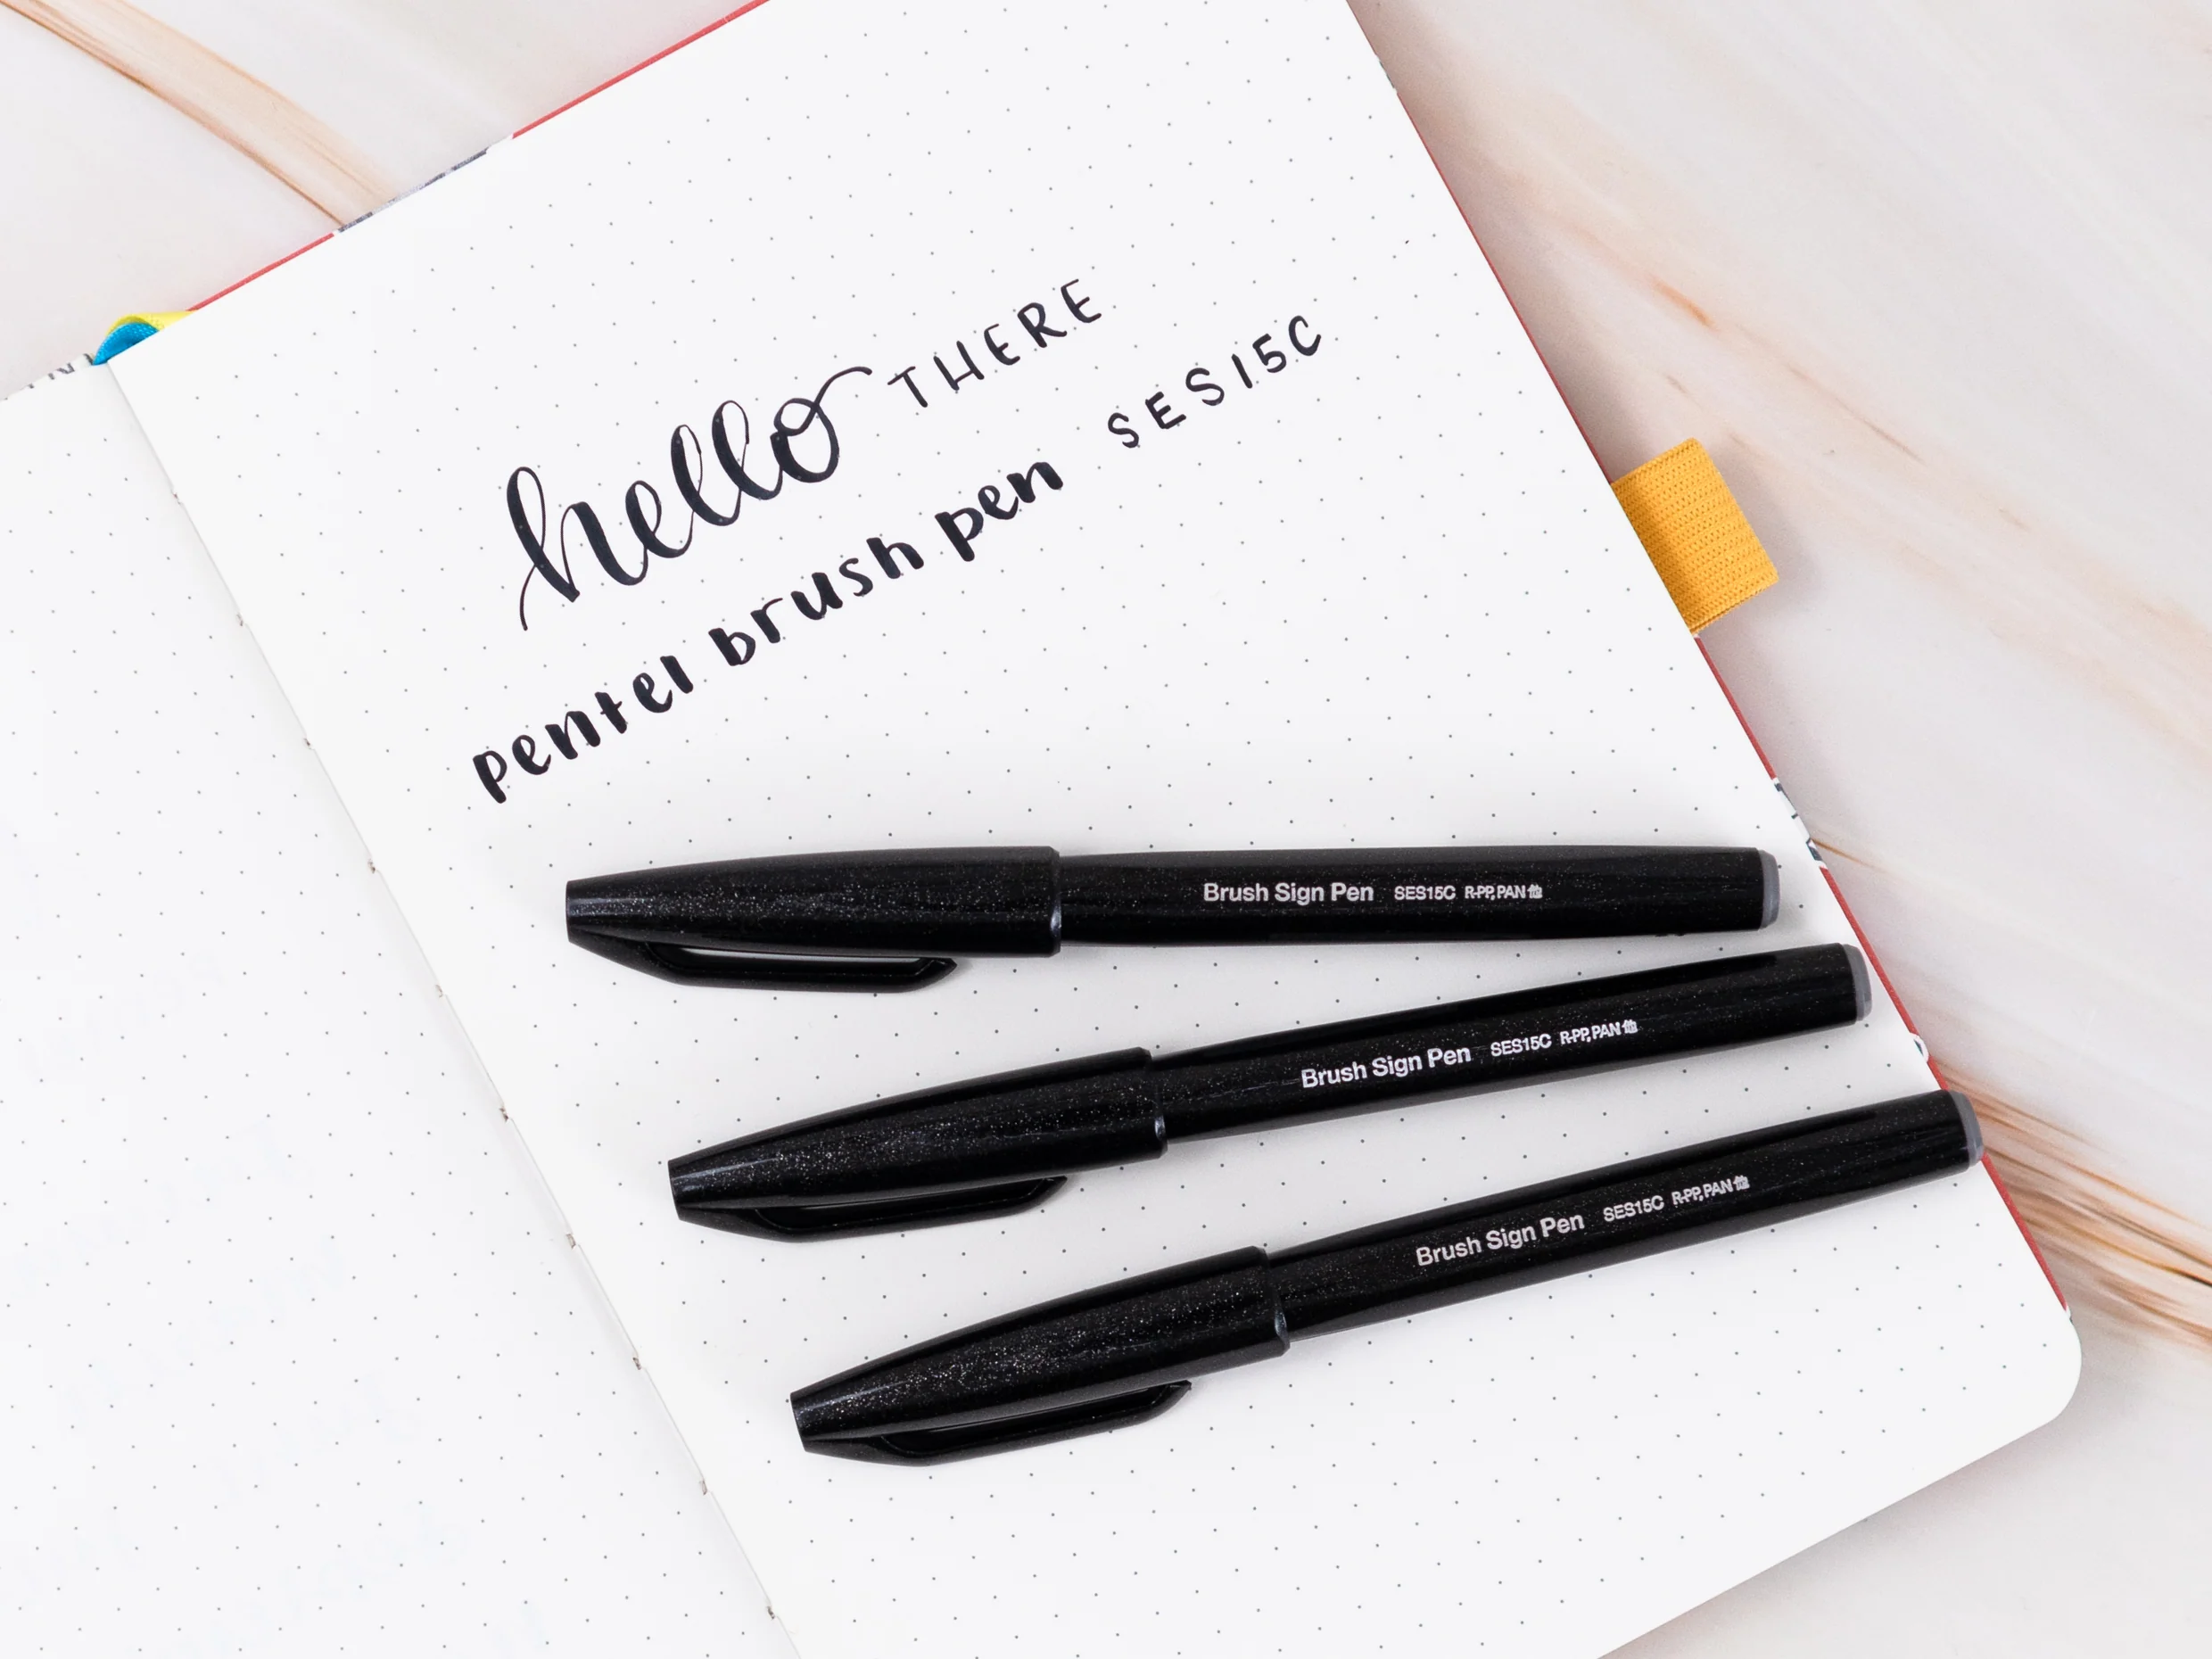 hello THERE
pentel brush pen SES15C
Brush Sign Pen SES15C R-PP, PAN 他
Brush Sign Pen SES15C R-PP, PAN 他
Brush Sign Pen SES15C R-PP, PAN 他